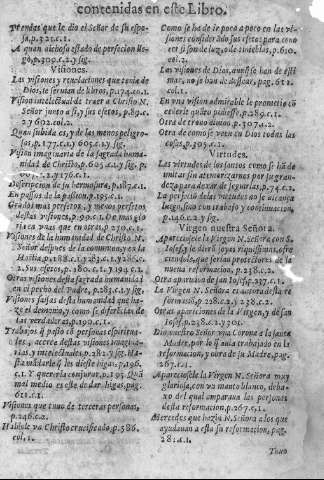 contenidas en este Libro.
que le dio el Señor de su espo-
ja, p. 321. c. 1.
A quan dichoso estado de perfecion lle-
gò, p. 309. c. 2. y sig.
Visiones.
Las visiones y reuelaciones que tenia de
Dios, le seruian de libros, p. 174. c. 1.
Vision intelectual de traer a Christo N.
Señor junto a si, y sus efetos, p. 89. c.
2. y 602. col. 2.
Quan subida es, y de las menos peligro-
sas, p. 177. c. 1. y 605. c. 1. y sig.
Vision imaginaria de la sagrada huma-
nidad de Christo, p. 605. c. 1. y sig. p.
y 176. c. 1.
Descripcion de su hermosura, p. 187. c. 1.
En passos de la passion, p. 195. c. 1.
Grandissimas perfetos, y menos perfetos
destas visiones, p. 99. c. 1. De mas glo-
ria en vnas que en otras, p. 230. c. 1.
Visiones de la humanidad de Christo N.
Señor despues de la comunion, y en la
Hostia, p. 188. c. 1. y 283. c. 1. y 286. c.
2. Sus efetos, p. 180. c. 1. y 194. c. 2.
Otras visiones desta sagrada humanidad
en el pecho del Padre, p. 285. c. 1. y sig.
Visiones falsas desta humanidad que ha-
ze el demonio, y como se diferencia de
las verdaderas, p. 190. c. 1.
Trabajos que passò con personas espiritua-
les, acerca destas visiones imagina-
rias, y intelectuales, p. 282. y sig. Has-
ta mandarle que les diesse higas, p. 196.
c. 1. Y querella conjurar, p. 195. Quan
mal medio es este de dar higas, pag.
611. c. 1.
Visiones que tuuo de terceras personas,
p. 246. c. 2.
Hablóle vn Christo crucificado, p. 586.
col. 1.
Como se ha de ir poco a poco en las vi-
siones considerando sus efetos para cono-
cer si son de luz, o de tinieblas, p. 610.
col. 2.
Las visiones de Dios, aunque se han de esti-
mar, no se han de dessear, pag. 611.
col. 1.
En vna vision admirable le prometio co-
ceder quanto pidiesse, p. 289. c. 1.
Otra de cruzo diuino, p. 307. c. 2.
Otra de como se ven en Dios todas las
cosas, p. 305. c. 1.
Virtudes.
Las virtudes de los santos como se han de
imitar sin atemorizarnos por su gran-
deza para dexar de seguirlas, p. 74. c. 2.
La perfeta de las virtudes no se alcança
luego, sino con trabajo y continuacion,
p. 146. c. 2. y sig.
Virgen nuestra Señora.
Aparecesele la Virgen N. Señora con S.
Iosef, y le dieron joyas riquissimas, ofre-
ciendole, que serian protectores de la
nueua reformacion, p. 238. c. 2.
Otra aparicion de san Iosef, p. 237. c. 1.
La Virgen N. Señora es autora de la re-
formacion, p. 228. c. 2. y 238. c. 2.
Otras apariciones de la Virgen, y de san
Iosef, p. 238. c. 2. y 300.
Dio nuestro Señor vna Corona a la santa
Madre, por lo que auia trabajado en la
reformacion, y onra de su Madre, pag.
267. c. 1.
Apareciosele la Virgen N. Señora muy
gloriosa, con vn manto blanco, deba-
xo del qual amparaua las personas
desta reformacion, p. 267. c. 1.
Mercedes que hazia N. Señora a los que
ayudauan a esta su reformacion, pag.
281. c. 1.
Tuuo